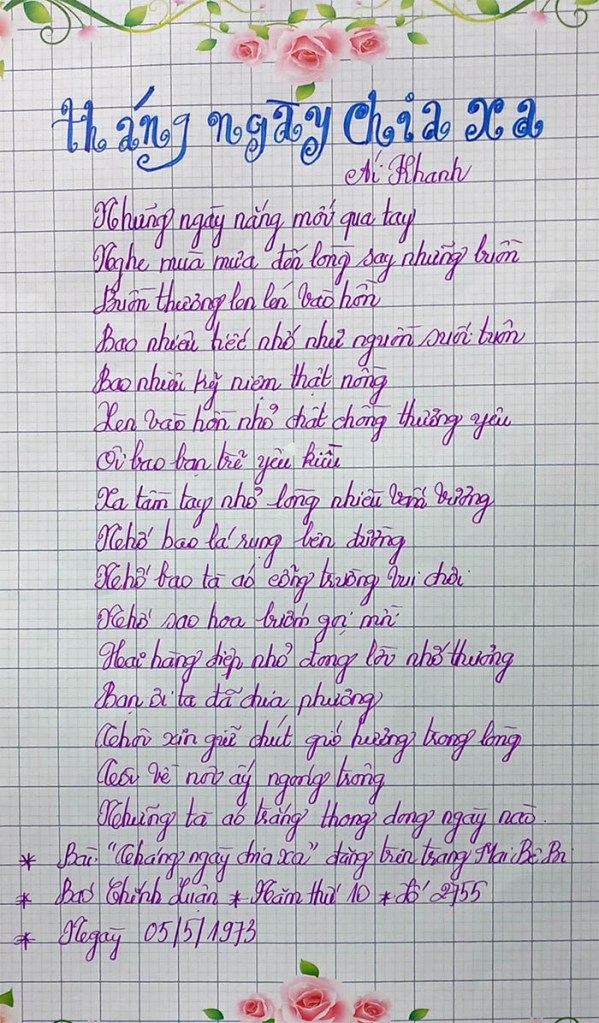 tháng ngày chia xa
Ái Khanh
Những ngày nắng mới qua tay
Nghe mưa mùa đến lòng say những buồn
Buồn thương len lén vào hồn
Bao nhiêu tiếc nhớ như nguồn suối tuôn
Bao nhiêu kỷ niệm thật nồng
Xen vào hồn nhỏ chất chồng thương yêu
Ôi bao bạn trẻ yêu kiều
Xa tầm tay nhỏ lòng nhiều vấn vương
Nhớ bao lá rụng bên đường
Nhớ bao tà áo cổng trường vui chơi
Nhớ sao hoa bướm gợi mời
Hai hàng điệp nhỏ đong lời nhớ thương
Bạn ơi ta đã chia phương
Thôi xin giữ chút gió hương trong lòng
Coi về nơi ấy ngong trông
Những tà áo trắng thong dong ngày nào.
* Bài: "Tháng ngày chia xa" đăng trên trang Mai Bê Bi
* Báo Chính Luận * Năm thứ 10 * số 2755
* Ngày 05/5/1973